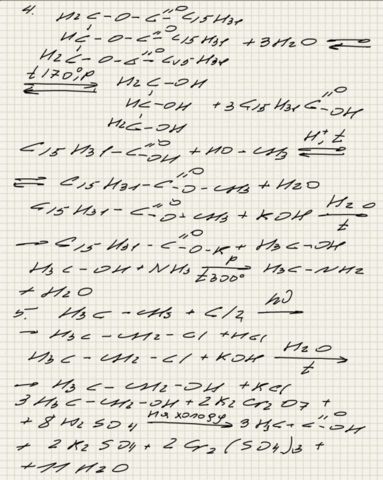 4. H2C-O-C=O C15H31
HC-O-C=O C15H31 + 3H2O ⇌
H2C-O-C=O C15H31
t 170°, P ⇌ H2C-OH
HC-OH + 3C15H31C=O OH
H2C-OH
C15H31-C=O OH + HO-CH3 H+, t ⇌
⇌ C15H31-C=O O-CH3 + H2O
C15H31-C=O O-CH3 + KOH H2O t →
→ C15H31-C=O O-K + H3C-OH
H3C-OH + NH3 P t 300° → H3C-NH2
+ H2O
5. H3C-CH3 + Cl2 hν →
→ H3C-CH2-Cl + HCl
H3C-CH2-Cl + KOH H2O t →
→ H3C-CH2-OH + KCl
3H3C-CH2-OH + 2K2Cr2O7 +
+ 8H2SO4 на холоду → 3H3C-C=O OH
+ 2K2SO4 + 2Cr2(SO4)3 +
+ 11H2O